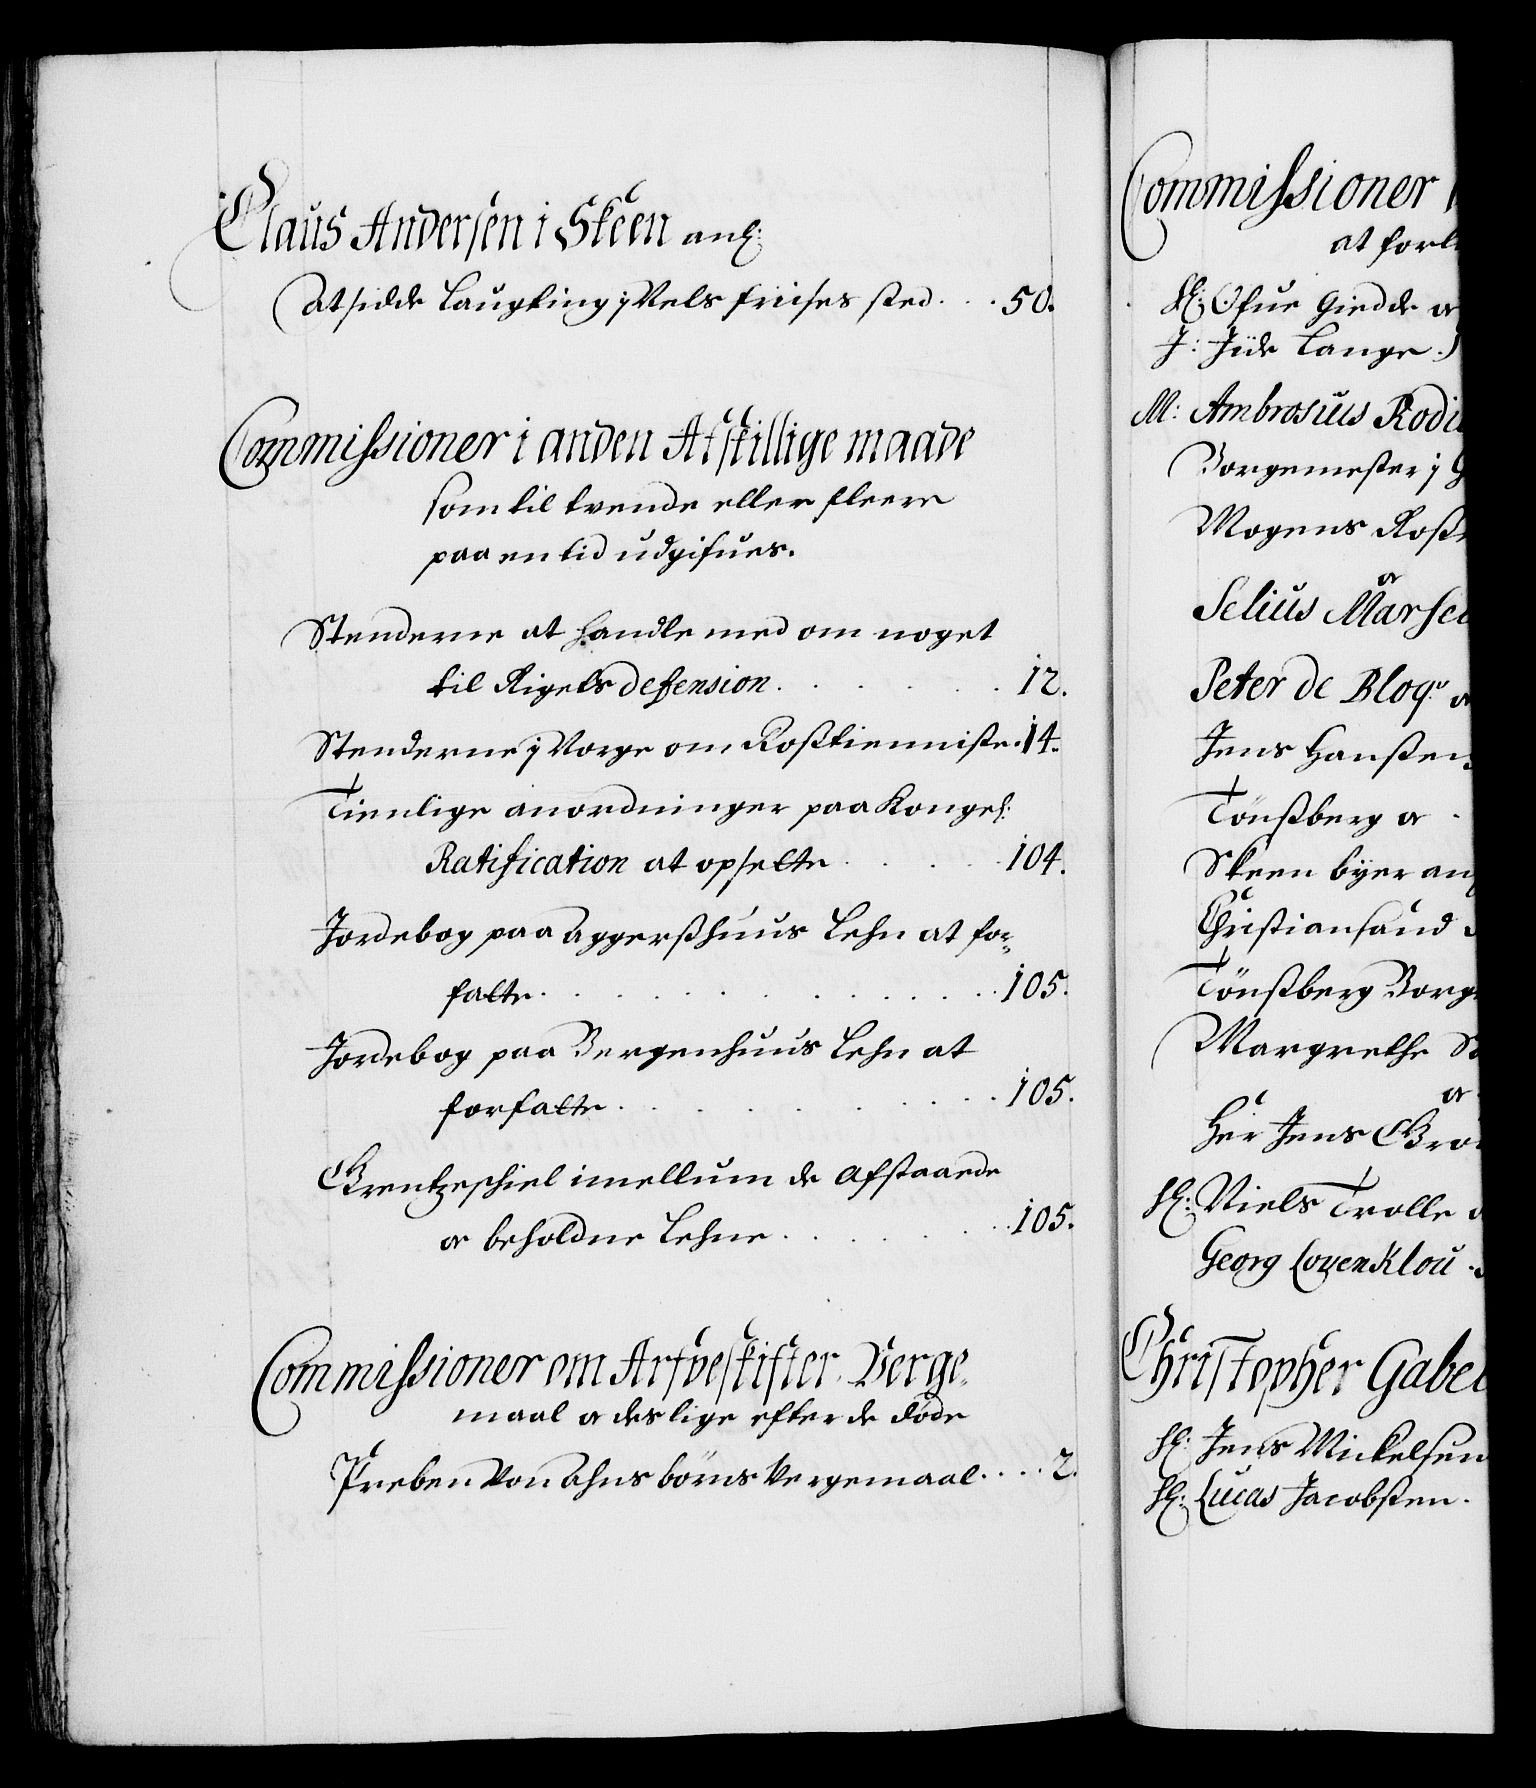 Claus Andersen i Skeen anl:
at sidde Laugting i Nels friises sted . . . 50.
Commissioner i anden Atskillige maade
som til tvende eller fleere
paa en tid udgifues.
Stenderne at handle med om noget
til Rigets defension . . . . . . 12.
Stenderne i Norge om Rosstienniste. 14.
Tienlige anordninger paa Kongel:
Ratification at opsette . . . . 104.
Jordebog paa Aggersshuus Lehn at for-
fatte . . . . . . . . 105.
Jordebog paa Bergenhuus Lehn at
forfatte . . . . . . . 105.
Grentzeschiel imellum de afstaaede
oc beholdne Lehne . . . . . 105.
Commissioner om Arfveskifter, Verge-
maal oc deslige efter de döde
Preben Von Ahns börns Vergemaal . . . . 2.
Commissioner
at forl
Sl: Ofue Giedde oc
J: Jüde Lange.
M: Ambrosius Rodi
Borgemester i
Mogens Ross
Selius Marsel
oc
Peter de Bloq:
Jens Hanssen
Tönssberg oc
Skeen byer anl
Christiansand
Tönssberg Borg
Margrethe
oc
Her Jens
Sl: Niels Trolle
Georg Lovenklou
Christopher Gabel
Sl: Jens Mickelsen
Sl: Lucas Jacobssen.